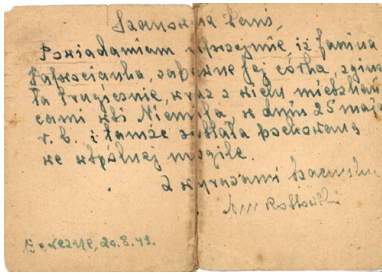 Szanowna Pani,
Powiadamiam uprzejmie, iż Janina
córka, zginę-
ła tragicznie, wraz z wielu mieszkań-
cami wsi Niemiła, w dniu 25 maja
r. b. i tamże została pochowana
we wspólnej mogile.
Z wyrazami szacunku
20.8.43.